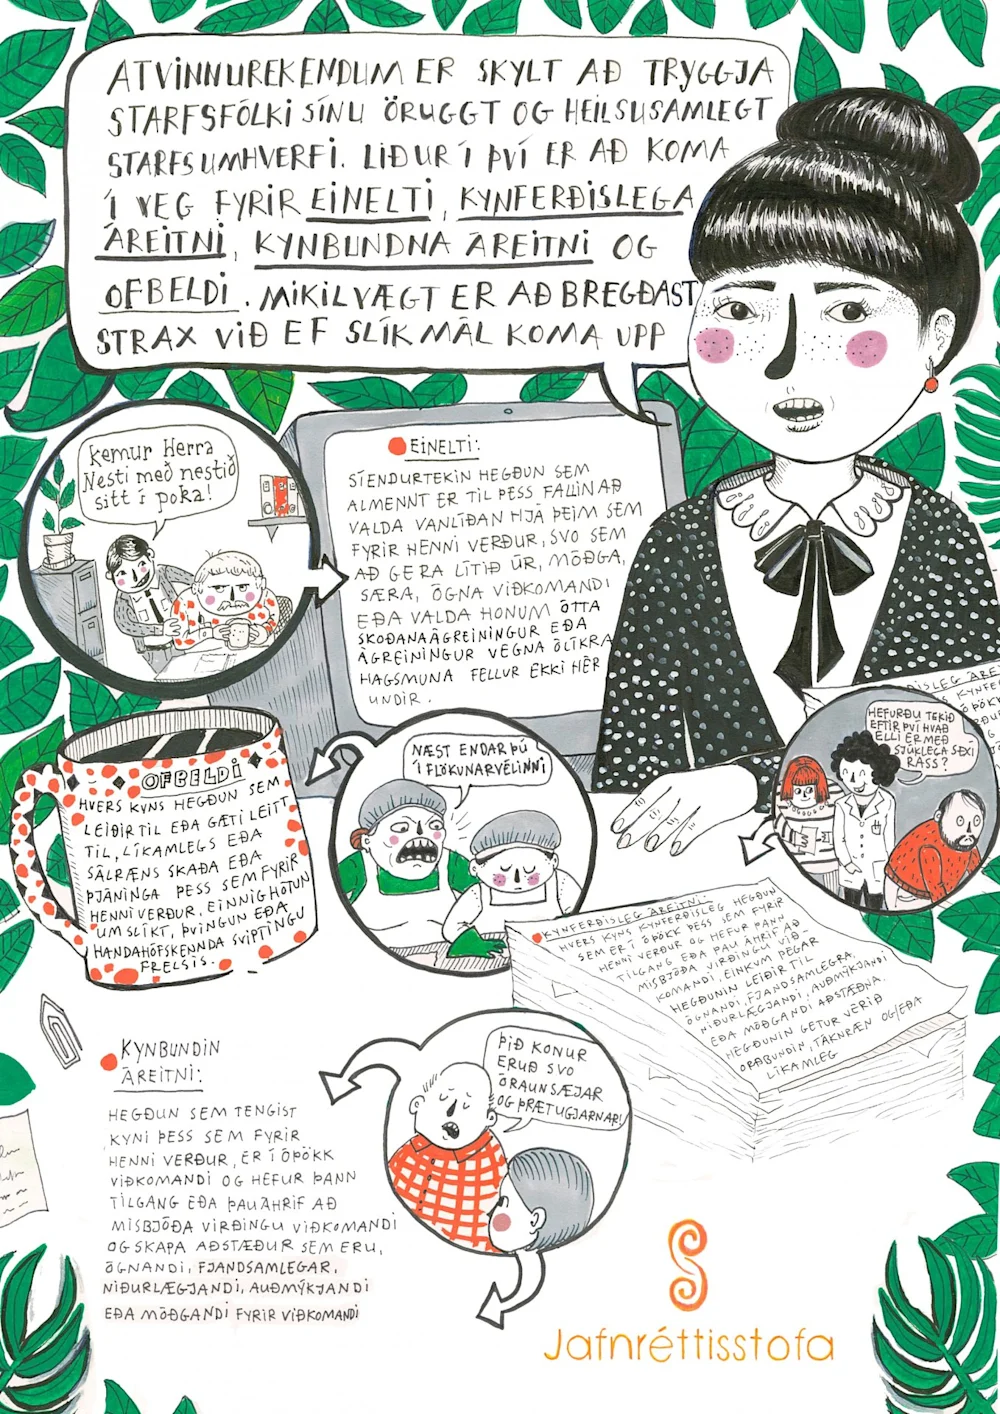 ATVINNUREKENDUM ER SKYLT AÐ TRYGGJA
STARFSFÓLKI SÍNU ÖRUGGT OG HEILSUSAMLEGT
STARFSUMHVERFI. LIÐUR Í ÞVÍ ER AÐ KOMA
Í VEG FYRIR EINELTI, KYNFERÐISLEGA
ÁREITNI, KYNBUNDNA ÁREITNI OG
OFBELDI. MIKILVÆGT ER AÐ BREGÐAST
STRAX VIÐ EF SLÍK MÁL KOMA UPP
Kemur Herra
Nesti með nestið
sitt í poka!
EINELTI:
SÍENDURTEKIN HEGÐUN SEM
ALMENNT ER TIL ÞESS FALLIN AÐ
VALDA VANLÍÐAN HJÁ ÞEIM SEM
FYRIR HENNI VERÐUR, SVO SEM
AÐ GERA LÍTIÐ ÚR, MÓÐGA,
SÆRA, ÓGNA VIÐKOMANDI
EÐA VALDA HONUM ÓTTA
SKOÐANAÁGREININGUR EÐA
ÁGREININGUR VEGNA ÓLÍKRA
HAGSMUNA FELLUR EKKI HÉR
UNDIR.
HEFURÐU TEKIÐ
EFTIR ÞVÍ HVAÐ
ELLI ER MEÐ
SJÚKLEGA SEXI
RASS?
NÆST ENDAR ÞÚ
Í FLÖKUNARVÉLINNI
OFBELDI
HVERS KYNS HEGÐUN SEM
LEIÐIR TIL EÐA GÆTI LEITT
TIL, LÍKAMLEGS EÐA
SÁLRÆNS SKAÐA EÐA
ÞJÁNINGA ÞESS SEM FYRIR
HENNI VERÐUR, EINNIG HÓTUN
UM SLÍKT, ÞVINGUN EÐA
HANDAHÓFSKENNDA SVIPTINGU
FRELSIS.
KYNFERÐISLEG ÁREITNI:
HVERS KYNS KYNFERÐISLEG HEGÐUN
SEM ER Í ÓÞÖKK ÞESS SEM FYRIR
HENNI VERÐUR OG HEFUR ÞANN
TILGANG EÐA ÞAU ÁHRIF AÐ
MISBJÓÐA VIRÐINGU VIÐ-
KOMANDI, EINKUM ÞEGAR
HEGÐUNIN LEIÐIR TIL
ÓGNANDI, FJANDSAMLEGRA,
NIÐURLÆGJANDI, AUÐMÝKJANDI
EÐA MÓÐGANDI AÐSTÆÐNA.
HEGÐUNIN GETUR VERIÐ
ORÐBUNDIN, TÁKNRÆN OG/EÐA
LÍKAMLEG
ÞIÐ KONUR
ERUÐ SVO
ÓRAUNSÆJAR
OG ÞRÆTUGJARNAR!
KYNBUNDIN
ÁREITNI:
HEGÐUN SEM TENGIST
KYNI ÞESS SEM FYRIR
HENNI VERÐUR, ER Í ÓÞÖKK
VIÐKOMANDI OG HEFUR ÞANN
TILGANG EÐA ÞAU ÁHRIF AÐ
MISBJÓÐA VIRÐINGU VIÐKOMANDI
OG SKAPA AÐSTÆÐUR SEM ERU,
ÓGNANDI, FJANDSAMLEGAR,
NIÐURLÆGJANDI, AUÐMÝKJANDI
EÐA MÓÐGANDI FYRIR VIÐKOMANDI
Jafnréttisstofa